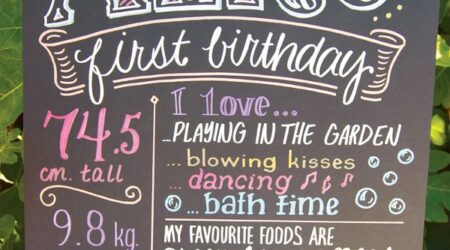 first birthday
74.5
cm. tall
9.8 kg.
I love...
...PLAYING IN THE GARDEN
...blowing kisses
...dancing
...bath time
MY FAVOURITE FOODS ARE